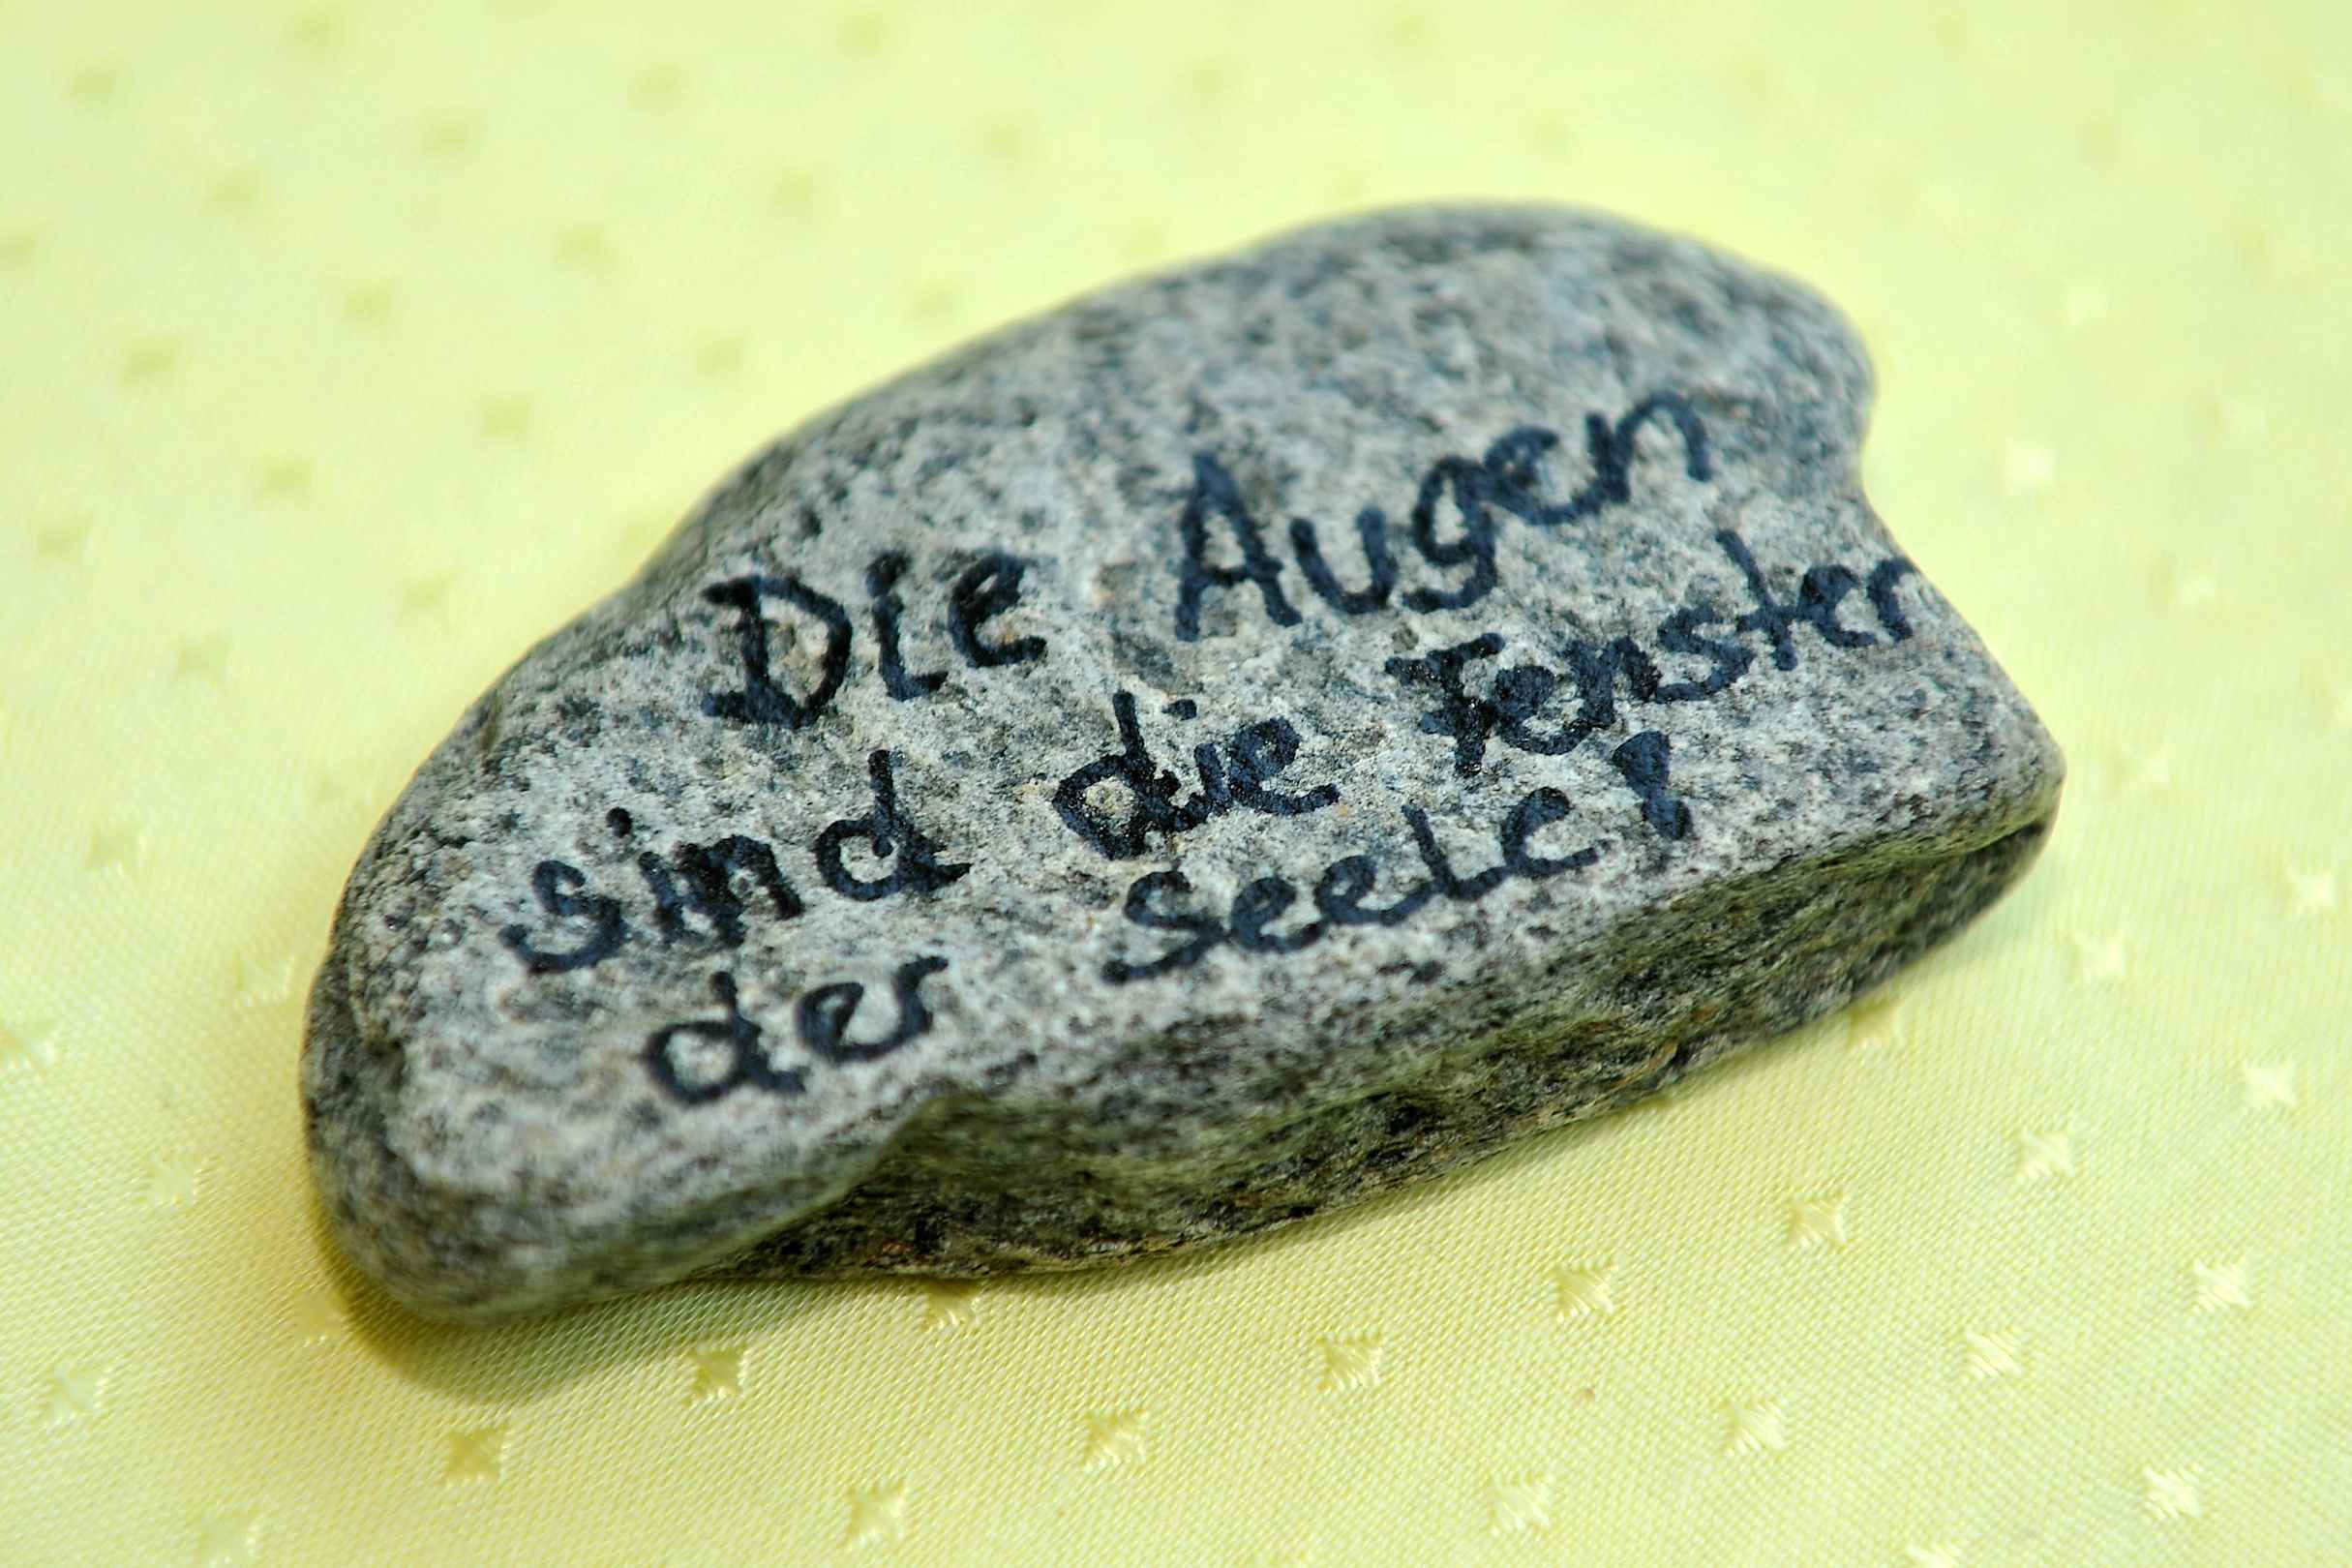 Die Augen
sind die Fenster
der Seele!